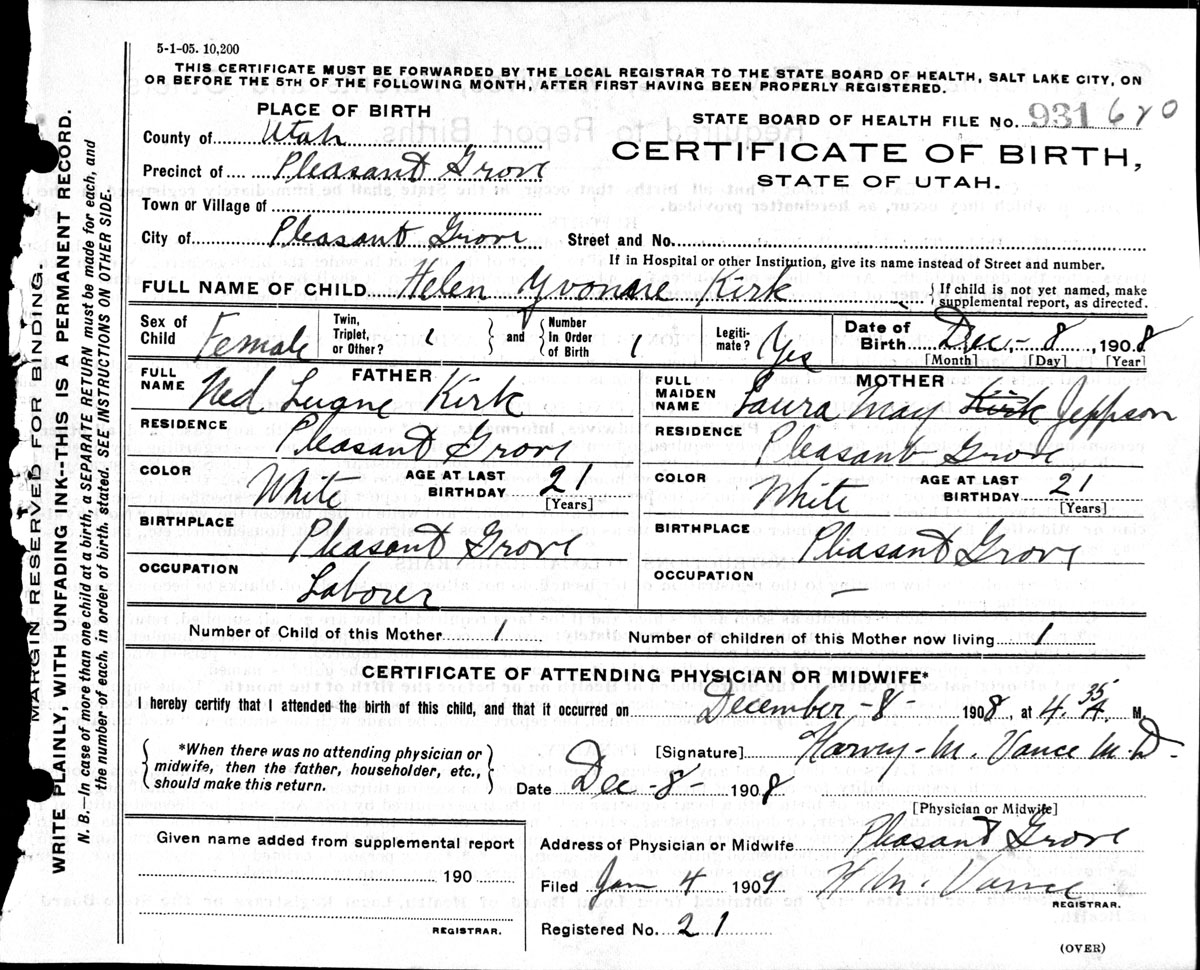 5-1-05. 10,200
THIS CERTIFICATE MUST BE FORWARDED BY THE LOCAL REGISTRAR TO THE STATE BOARD OF HEALTH, SALT LAKE CITY, ON
OR BEFORE THE 5TH OF THE FOLLOWING MONTH, AFTER FIRST HAVING BEEN PROPERLY REGISTERED.
PLACE OF BIRTH
County of Utah
Precinct of Pleasant Grove
Town or Village of
City of Pleasant Grove
STATE BOARD OF HEALTH FILE No. 931 620
CERTIFICATE OF BIRTH,
STATE OF UTAH.
Street and No.
If in Hospital or other Institution, give its name instead of Street and number.
FULL NAME OF CHILD Helen Yvonne Kirk
{ If child is not yet named, make supplemental report, as directed.
Sex of Child Female
Twin, Triplet, or Other? 1 } and { Number In Order of Birth 1
Legiti-mate? Yes
Date of Birth Dec. - 8, 1908
[Month] [Day] [Year]
FATHER
FULL NAME Ned Lugne Kirk
RESIDENCE Pleasant Grove
COLOR White AGE AT LAST BIRTHDAY 21
[Years]
BIRTHPLACE Pleasant Grove
OCCUPATION Laborer
MOTHER
FULL MAIDEN NAME Laura May Kirk Jeppson
RESIDENCE Pleasant Grove
COLOR White AGE AT LAST BIRTHDAY 21
[Years]
BIRTHPLACE Pleasant Grove
OCCUPATION —
Number of Child of this Mother 1
Number of children of this Mother now living 1
CERTIFICATE OF ATTENDING PHYSICIAN OR MIDWIFE*
I hereby certify that I attended the birth of this child, and that it occurred on December - 8 1908, at 4.35 A. M.
{ *When there was no attending physician or midwife, then the father, householder, etc., should make this return. }
[Signature] Harvey - M. Vance M.D.
Date Dec - 8 - 1908
[Physician or Midwife]
Given name added from supplemental report
190
REGISTRAR.
Address of Physician or Midwife Pleasant Grove
Filed Jan 4 1909 H. M. Vance
REGISTRAR.
Registered No. 21
(OVER)
MARGIN RESERVED FOR BINDING.
WRITE PLAINLY, WITH UNFADING INK--THIS IS A PERMANENT RECORD.
N. B.—In case of more than one child at a birth, a SEPARATE RETURN must be made for each, and
the number of each, in order of birth, stated. SEE INSTRUCTIONS ON OTHER SIDE.